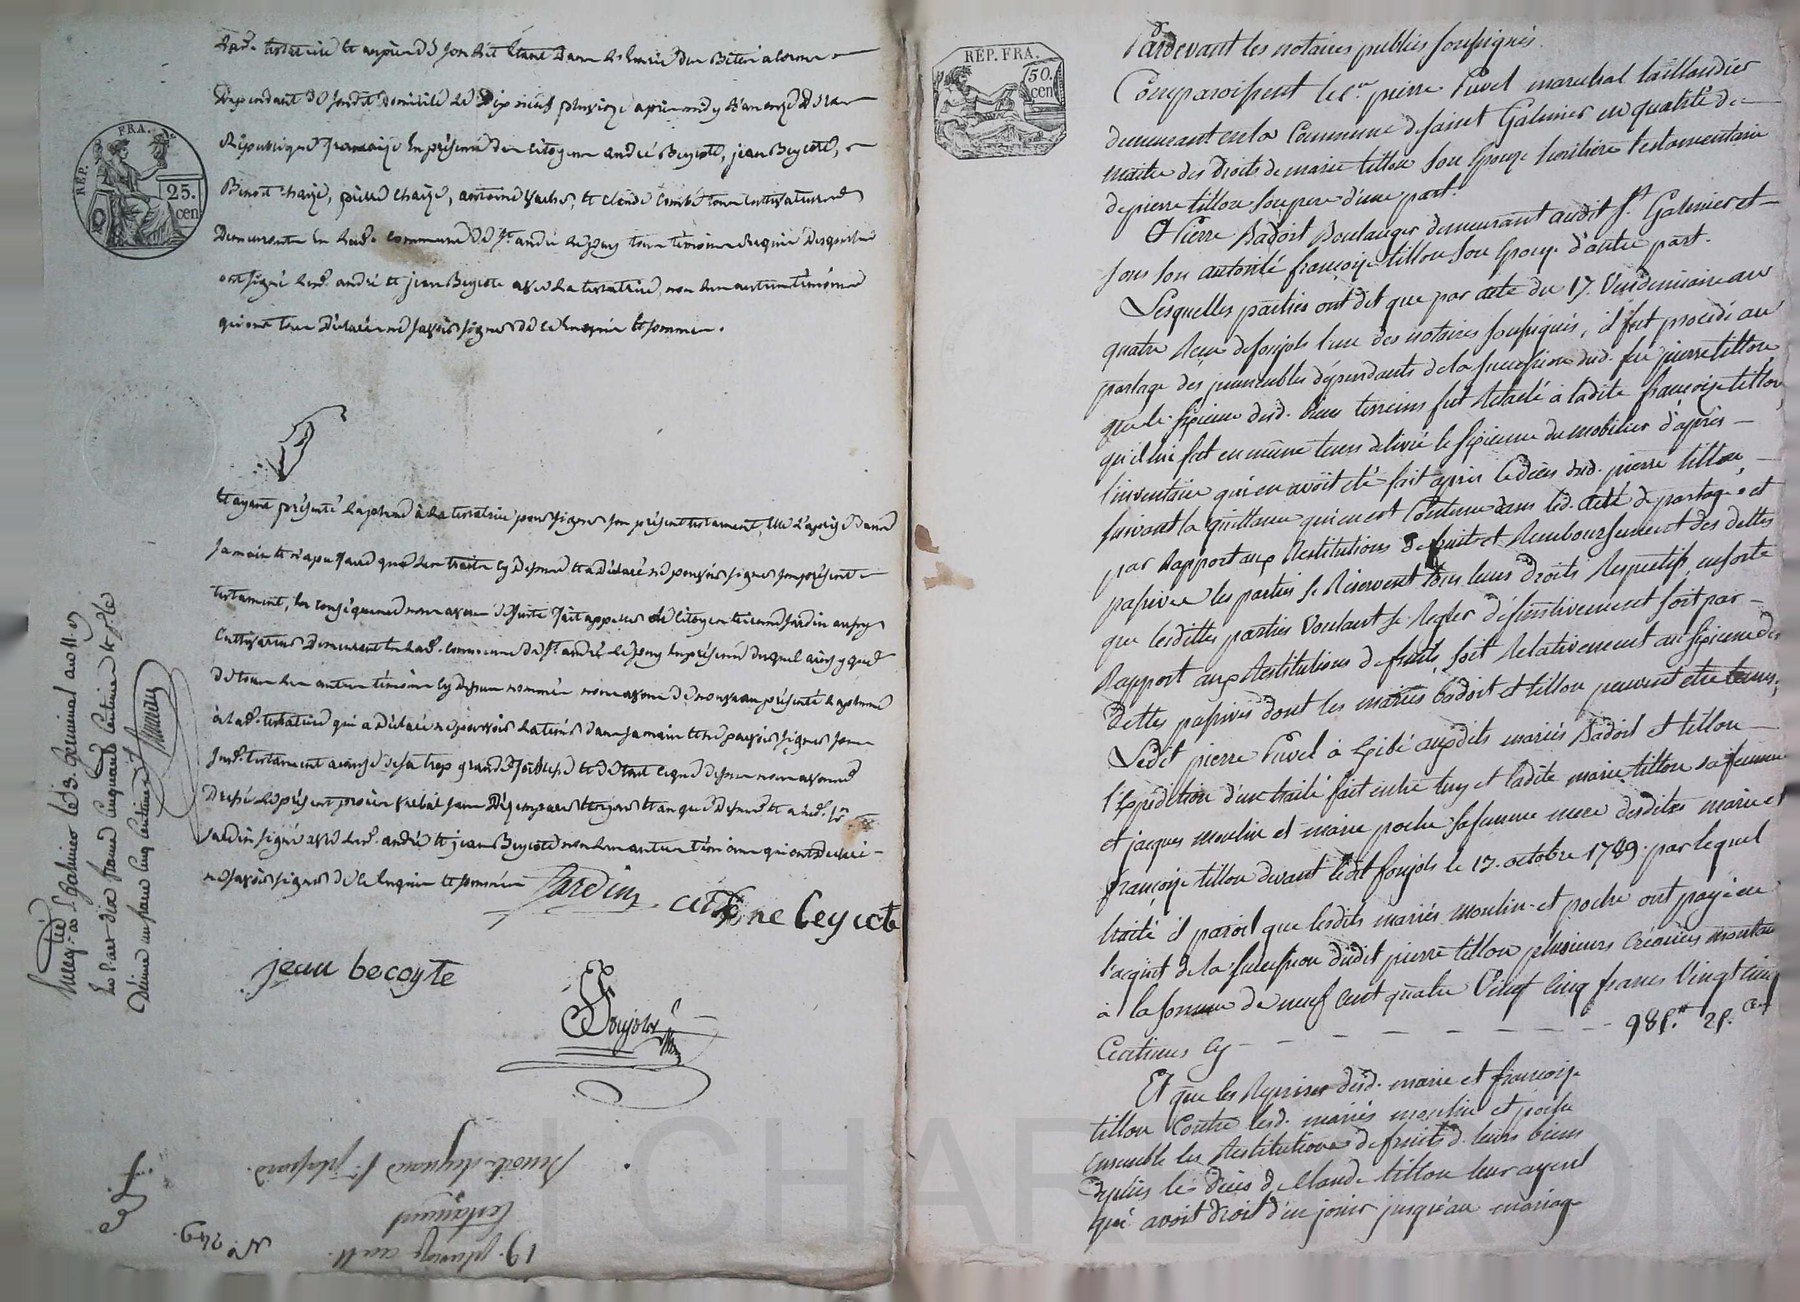 REP. FRA.
25.
cen
dépendant de son dit domicile le dix neuf pluviose après midy l'an onze de la
République française en présence des citoyens andré Beycote, jean Beycote,
Benoit charze, pierre charze, antoine et claude tous cultivateurs
Demeurants en lad. commune de St. andré le puy tous témoins requis desquels
ont signé lesd. andré et jean Beycote avec la testatrice, non les autres témoins
qui ont tous déclaré ne savoir signer de ce enquis et sommés.
Et ayant présenté la plume à la testatrice pour signer son présent testament, elle l'a prise dans
sa main et n'a pu faire que les traits cy dessus et a déclaré ne pouvoir signer son présent
testament, en conséquence nous avons de suite fait appeller le citoyen etienne jardin aussy
cultivateur demeurant en lad. commune de St. andré le puy en présence duquel ainsy que
de tous les autres témoins cy dessus nommés nous avons de nouveau présenté la plume
à lad. testatrice qui a déclaré ne pouvoir la tenir dans sa main et ne pouvoir signer son
susd. testament à cause de sa trop grande foiblesse et de tout ce que dessus nous avons
dressé le présent procès verbal sans désemparer les jour et an que dessus et a led.
jardin signé avec lesd. andré et jean Beycote non les autres témoins qui ont déclaré
ne savoir signer de ce enquis et sommés
Jardin
Beycote
jean becoyte
Soujols
Enreg. à St Galmier le 3. Germinal an 11.
dix francs cinquante centimes
Dixme un franc cinq centimes
19. pluviose an 11.
Testament
Benoite
N° 249.
REP. FRA.
50.
cen
Pardevant les notaires publics soussignés.
Comparoissent le Cn. pierre Puvel marechal taillandier
demeurant en la Commune de saint Galmier en qualité de
maitre des droits de marie tillon son Epouse heritière testamentaire
de pierre tillon son pere d'une part.
Et Pierre Badoit Boulanger demeurant audit St. Galmier et
sous son autorité françoise tillon son Epouse d'autre part.
Lesquelles parties ont dit que par acte du 17. Vendemiaire an
quatre Reçu de soujols l'un des notaires soussignés, il fut procédé au
partage des immeubles dépendants de la succession dud. feu pierre tillon
que le sixieme desd. biens terreins fut relaché à ladite françoise tillon,
qu'il lui fut en même tems delivré le sixieme du mobilier d'après
l'inventaire qui en avoit été fait après le deces dud. pierre tillon,
suivant la quittance qui en est contenue dans led. acte de partage et
par Rapport aux Restitutions de fruits et Remboursement des dettes
passives les parties se Réservent tous leurs droits Respectifs en sorte
que lesdittes parties voulant se Regler définitivement soit par
Rapport aux Restitutions de fruits, soit Relativement au sixieme des
Dettes passives dont les mariés badoit et tillon peuvent etre tenus,
Ledit pierre Puvel à Exibé auxdits mariés Badoit et tillon
l'Expédition d'un traité fait entre luy et ladite marie tillon sa femme
et jacques moulin et marie poche sa femme mere desdites marie et
françoise tillon devant ledit soujols le 13. octobre 1789. par lequel
traité il paroit que lesdits mariés moulin et poche ont payé en
l'acquit de la succession dudit pierre tillon plusieurs créances montant
à la somme de neuf cent quatre Vingt cinq francs Vingt cinq
Centimes cy - - - - - - 985.tt 25. Ces
Et que les Reprises desd. marie et françoise
tillon contre lesd. mariés moulin et poche
ensemble les Restitutions de fruits d. leurs biens
depuis le deces de Claude tillon leur ayeul
qui avoit droit d'en jouir jusqu'au mariage
CHAR